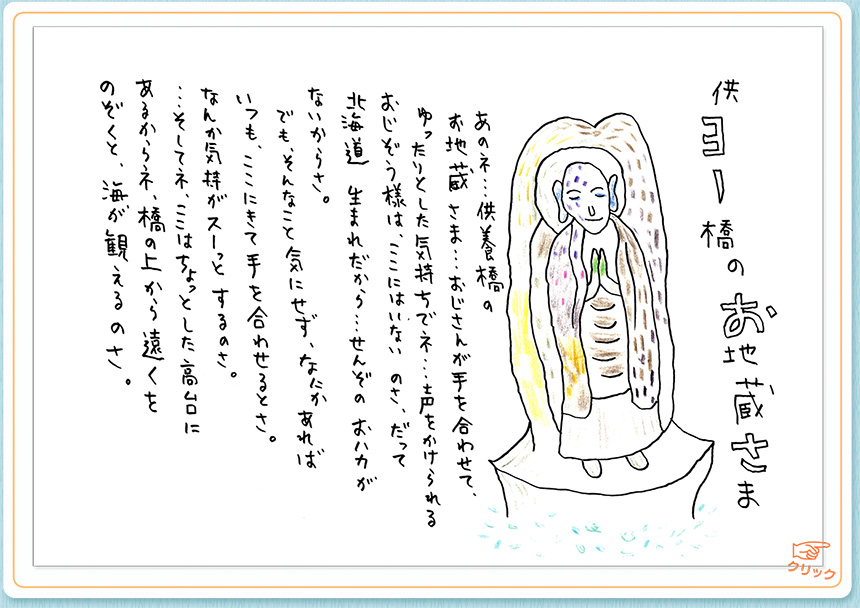 供ヨー橋のお地蔵さま
あのネ…供養橋の
お地蔵さま…おじさんが手を合わせて、
ゆったりとした気持ちでネ…声をかけられる
おじぞう様は、ここにはいないのさ、だって
北海道 生まれだから…せんぞのおハカが
ないからさ。
でも、そんなこと気にせず、なにかあれば
いつも、ここにきて手を合わせるとさ。
なんか気持がスーっとするのさ。
…そしてネ、ここはちょっとした高台に
あるからネ、橋の上から遠くを
のぞくと、海が観えるのさ。
クリック